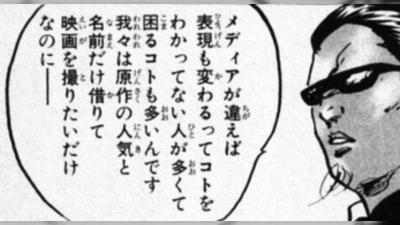 メディアが違えば
表現も変わるってコトを
わかってない人が多くて
困るコトも多いんです
我々は原作の人気と
名前だけ借りて
映画を撮りたいだけ
なのに──